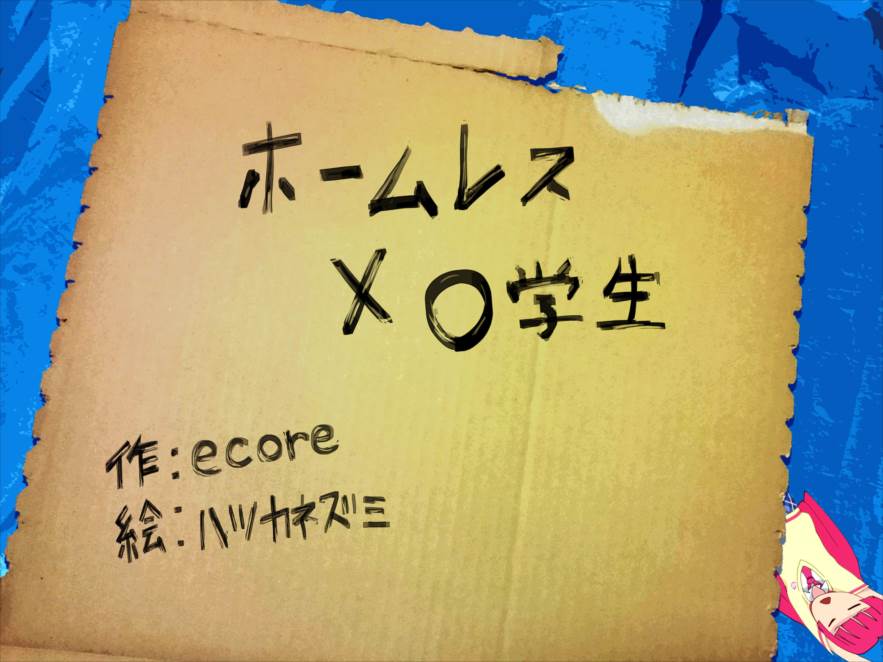 ホームレス
×〇学生
作:ecore
絵:ハツカネズミ